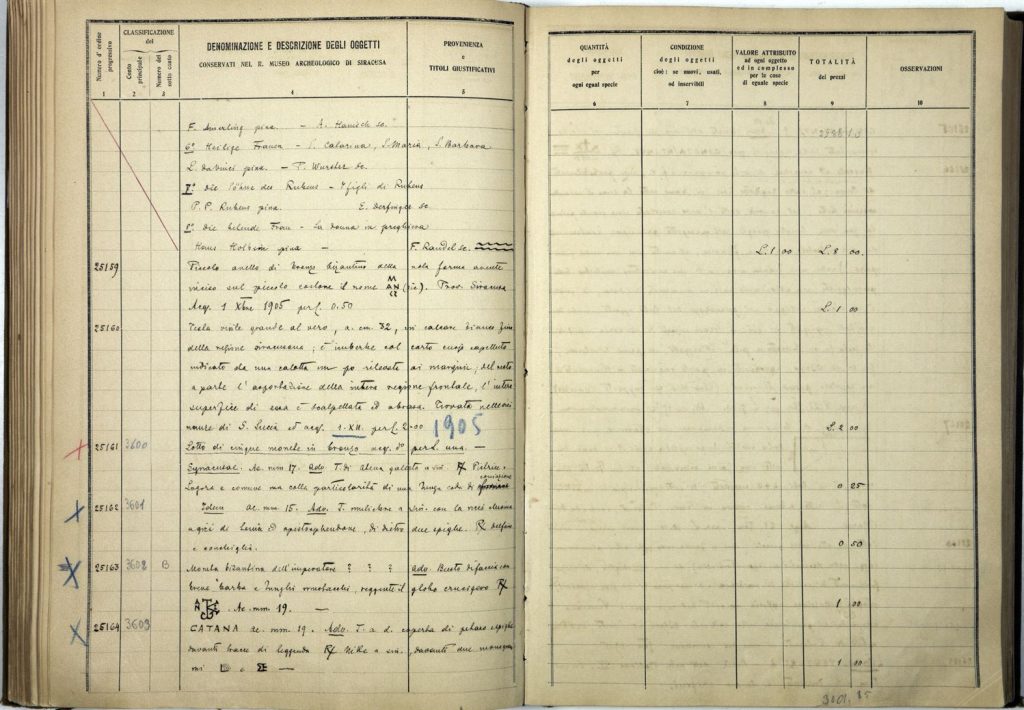 Numero d'ordine progressivo
CLASSIFICAZIONE del
Conto principale
Numero del sotto conto
DENOMINAZIONE E DESCRIZIONE DEGLI OGGETTI
CONSERVATI NEL R. MUSEO ARCHEOLOGICO DI SIRACUSA
PROVENIENZA
e
TITOLI GIUSTIFICATIVI
1 2 3 4 5
F. Amerling pinx. — A. Hanisch sc.
6° Heilige Frauen — S. Catarina, S. Maria, S. Barbara
L. da Vinci pinx. — T. Wurster sc.
7° die Söhne des Rubens — I figli di Rubens
P. P. Rubens pinx. E. sc
die betende Frau — La donna in preghiera
Hans Holbein pinx — F. Randel sc.
25159 Piccolo anello di bronzo bizantino della nota forma avente
inciso sul piccolo castone il nome Prov. Siracusa
Acq. 1 Xbre 1905 per £. 0.50
25160 Testa virile grande al vero, a. cm. 32, in calcare bianco fine
della regione siracusana; è imberbe col corto
indicato da una calotta un po rilevata ai margini; del resto
a parte l'asportazione della intera regione frontale, l'intera
superfice di essa è scalpellata ed abrasa. Trovata nelle
di S. Lucia ed acq. 1.XII. per £. 2.00 1905
25161 3600 Lotto di cinque monete in bronzo acq. per £. una. —
Syracusae. Ae. mm 17. Adv. T. di Atena galeata a sin.
Logora e comune ma colla particolarità di una lunga coda di
25162 3601 Ae mm. 15. Adv. T. muliebre a
di dietro due spighe.
e conchiglia.
25163 3602 B Moneta bizantina dell'imperatore ? ? ? Adv. Busto di faccia con
breve barba e lunghi mustacchi, reggente il globo crucigero
Ae. mm 19. —
25164 3603 CATANA ae. mm. 19. Adv. T. a d. coperta di petaso e spighe
davanti tracce di leggenda Nike a sin. davanti due monogram
mi e —
QUANTITÀ
degli oggetti
per
ogni egual specie
CONDIZIONE
degli oggetti
cioè: se nuovi, usati,
od inservibili
VALORE ATTRIBUITO
ad ogni oggetto
ed in complesso
per le cose
di eguale specie
TOTALITÀ
dei prezzi
OSSERVAZIONI
6 7 8 9 10
L. 1 00 L. 8 00
L. 1 00
L. 2 00
0 25
0 50
1 00
1 00